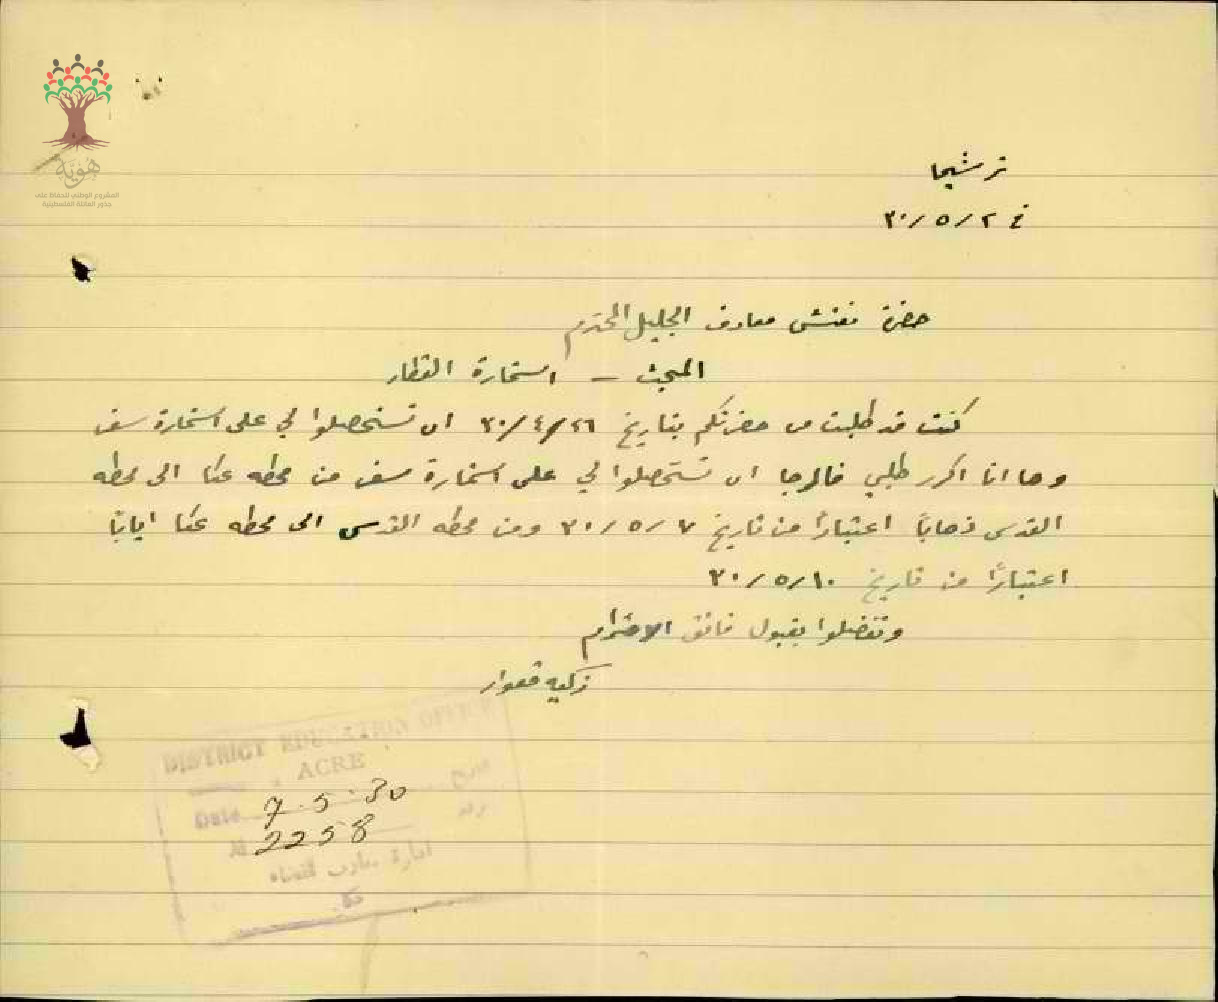 هوية
المشروع الوطني للحفاظ على
جذور العائلة الفلسطينية
ترشيحا
٣٠/٥/٢
حضرة مفتش معارف الجليل المحترم
المبحث – استمارة القطار
كنت قد طلبت من حضرتكم بتاريخ ٣٠/٤/٢٦ ان تستحصلوا لي على استمارة سفر
وها انا اكرر طلبي فالرجا ان تستحصلوا لي على استمارة سفر من محطه عكا الى محطه
القدس ذهاباً اعتباراً من تاريخ ٣٠/٥/٧ ومن محطه القدس الى محطه عكا اياباً
اعتباراً من تاريخ ٣٠/٥/١٠
وتفضلوا بقبول فائق الاحترام
زكيه قعوار
DISTRICT EDUCATION OFFICE
ACRE
Date 7.5.30 تاريخ
2258
ادارة معارف القضاء
عكا